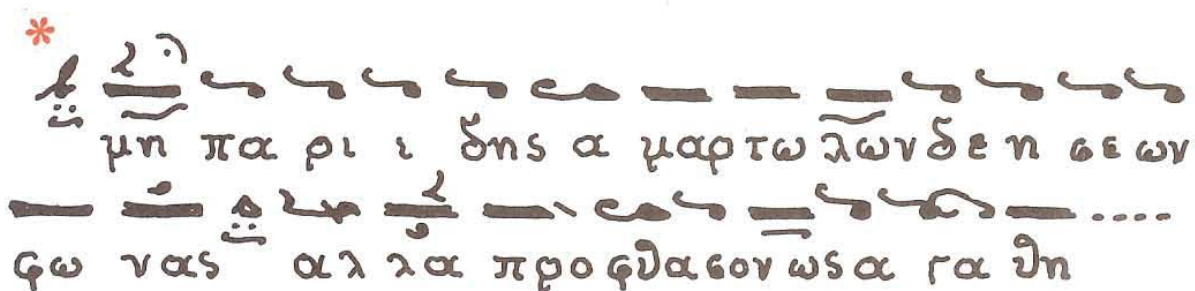 μη πα ρι ι δης α μαρ τω λων δε η σε ων
φω νας αλ λα προ φθα σον ως α γα θη